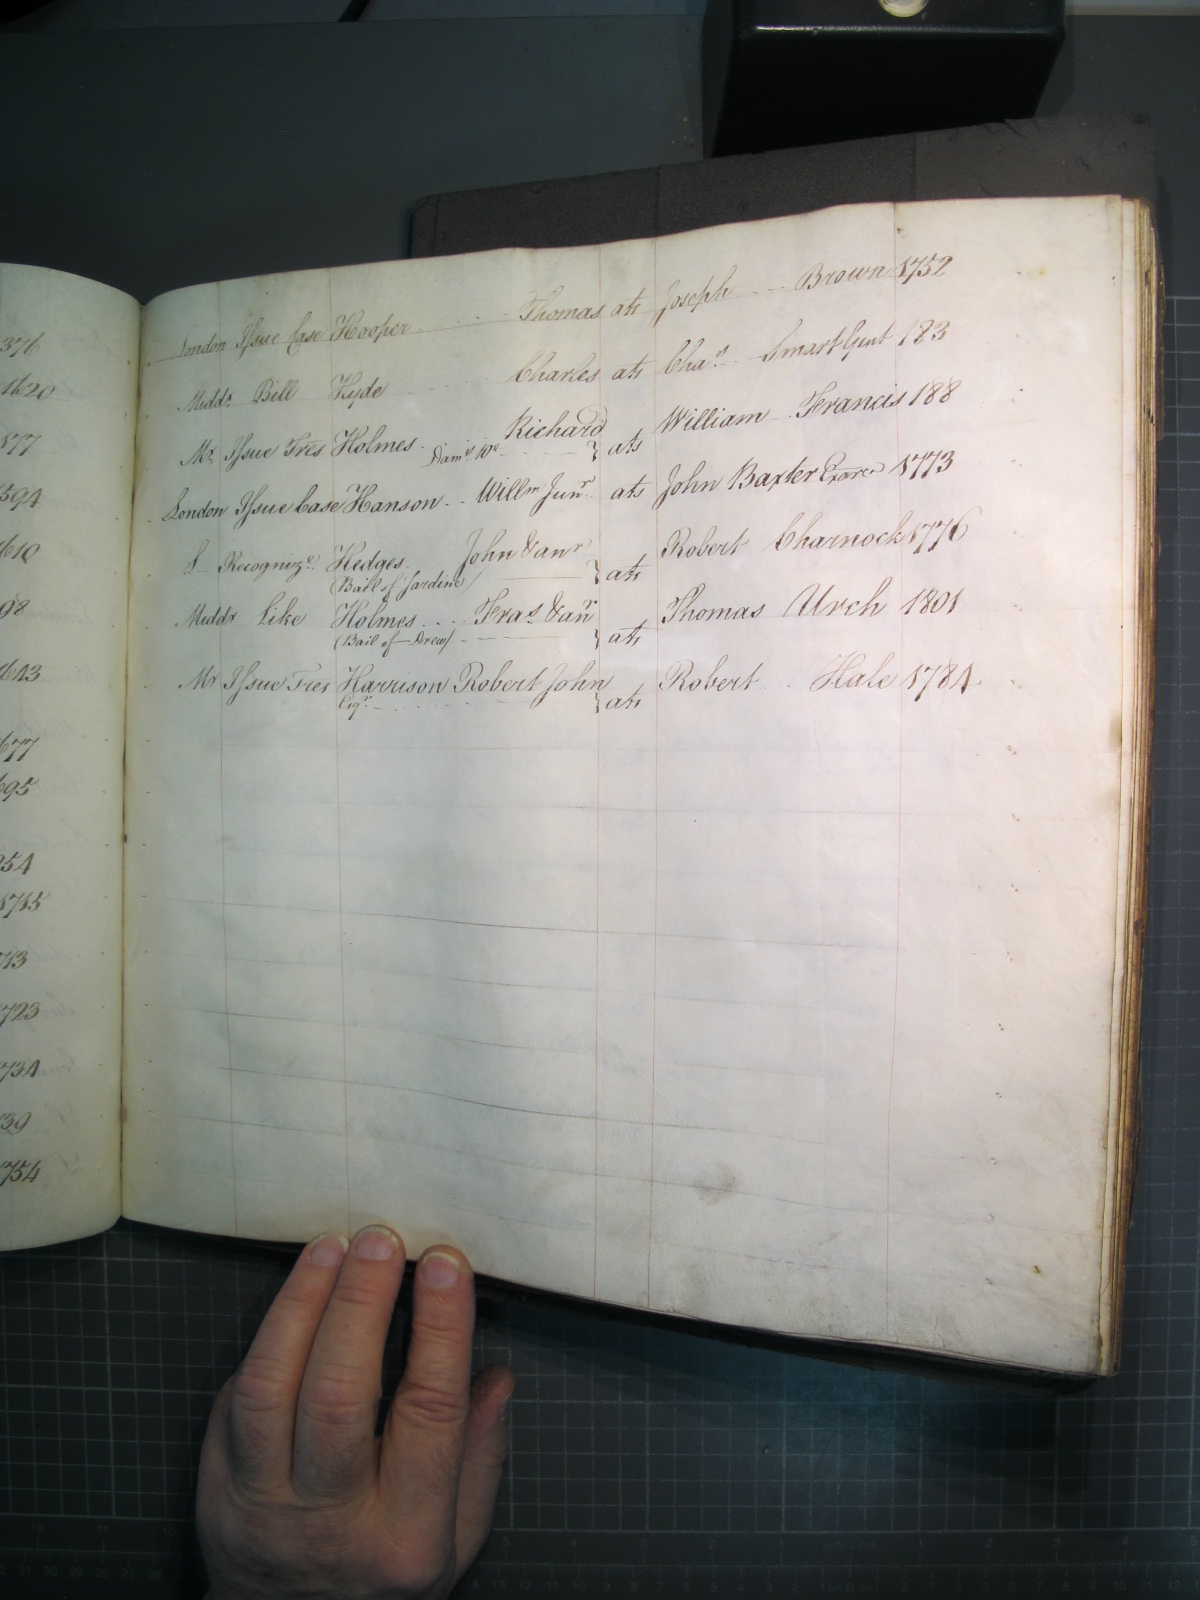 376
1620
577
594
610
98
643
677
695
254
1715
713
723
734
39
754
London Issue Case Hooper Thomas ats Joseph Brown 1752
Middx Bill Hyde Charles ats Chas Smart Gent 183
Mx Issue Tres Holmes Richard
Dams 10s } ats William Francis 188
London Issue Case Hanson Willm Junr ats John Baxter Exors 1773
L Recognize Hedges John & anr
(Bail of Jardine) } ats Robert Charnock 1776
Middx Like Holmes Fras & anr
(Bail of Drew) } ats Thomas Urch 1801
Mx Issue Tres Harrison Robert John
Esqr } ats Robert Hale 1784